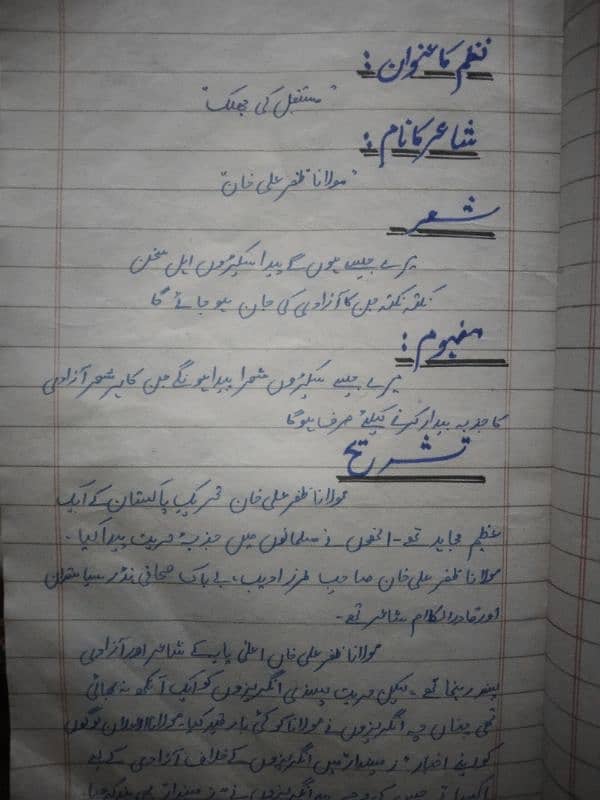 نظم کا عنوان :
"مستقبل کی جھلک"
شاعر کا نام :
"مولانا ظفر علی خان"
شعر
میرے جیسے ہوں گے پیدا سیکڑوں اہل سخن
نکتہ نکتہ جن کا آزادی کی جان ہو جائے گا
مفہوم :
میرے جیسے سیکڑوں شعرا پیدا ہونگے جن کا ہر شعر آزادی
کا جذبہ بیدار کرنے کیلئے صرف ہوگا
تشریح
مولانا ظفر علی خان تحریک پاکستان کے ایک
عظیم مجاہد تھے۔ انھوں نے مسلمانوں میں جذبۂ حریت پیدا کیا۔
مولانا ظفر علی خان صاحب طرز ادیب، بے باک صحافی نڈر سیاستدان
اور قادر الکلام شاعر تھے۔
مولانا ظفر علی خان اعلیٰ پایے کے شاعر اور آزادی
پسند رہنما تھے۔ لیکن حریت پسندی انگریزوں کو ایک آنکھ نہ بھاتی
تھی چناں چہ انگریزوں نے مولانا کو کئی بار قید کیا۔ مولانا لوگوں
کو اپنے اخبار زمیندار میں انگریزوں کے خلاف آزادی کے لیے
اکساتے جس کی وجہ سے انگریزوں نے زمیندار بھی